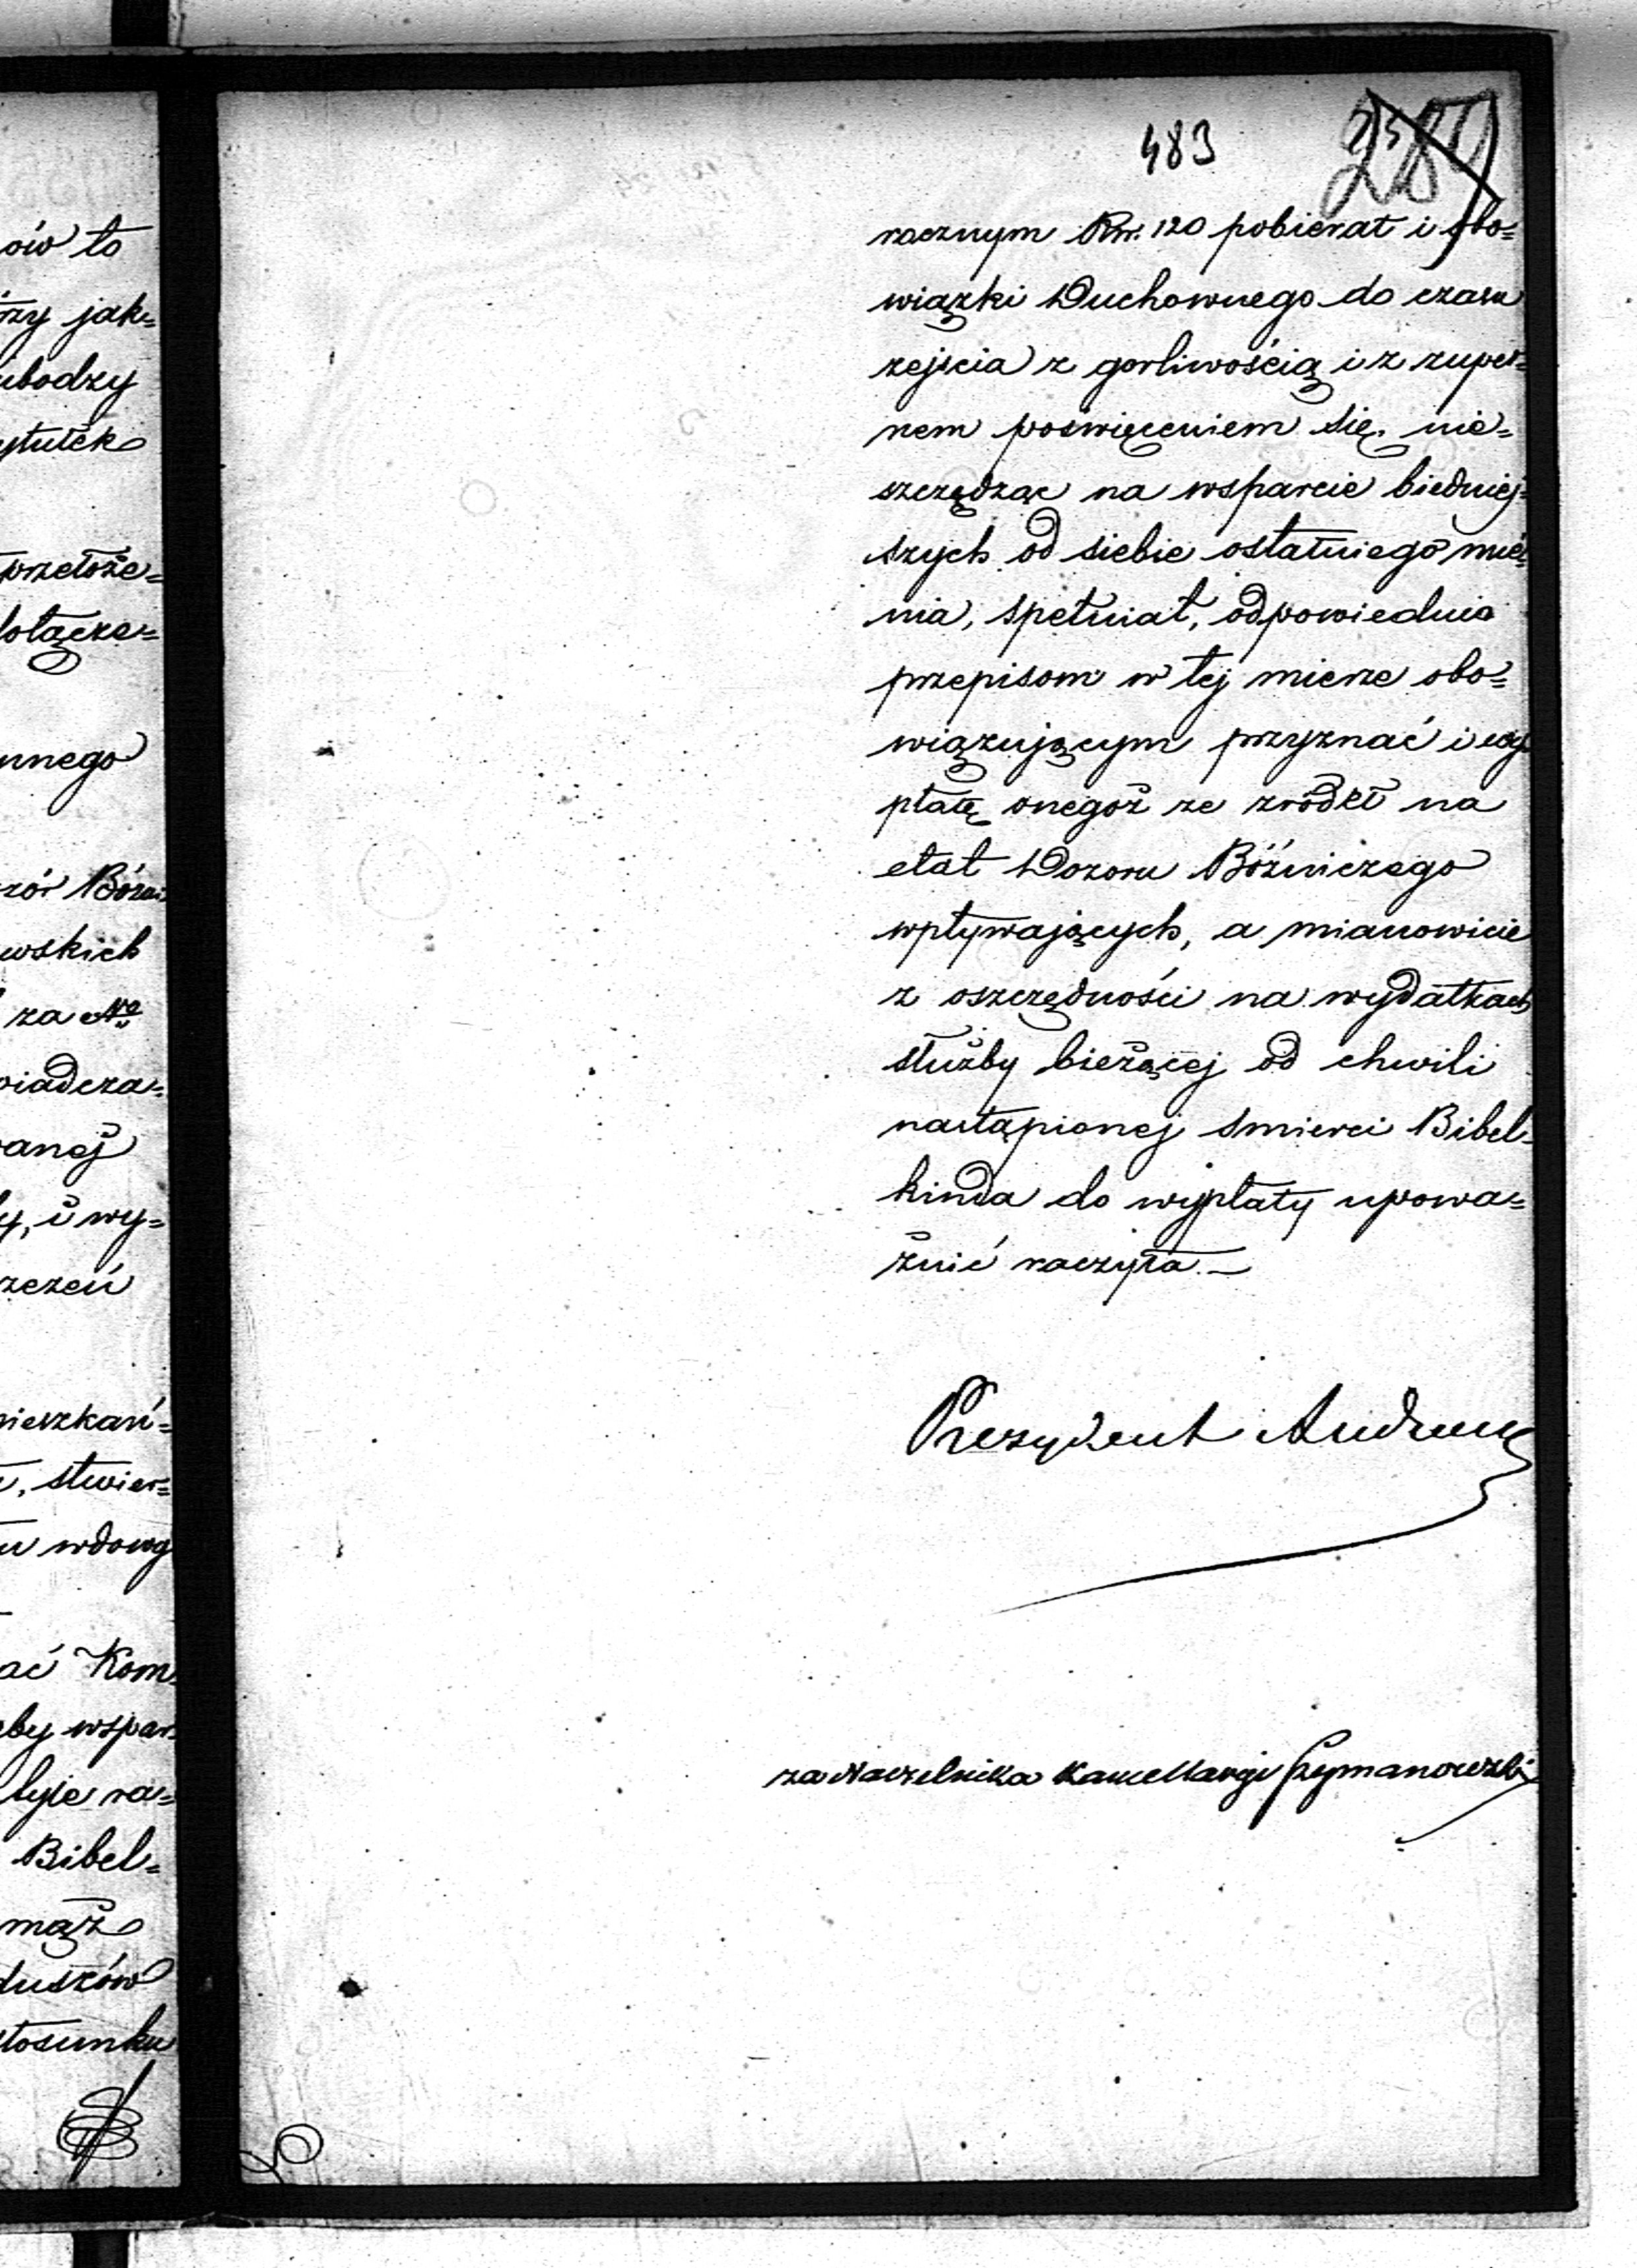 ów to
rzy jak=
ubodzy
ytułek
przełoże=
dołącze=
nnego
zór Bóżni
wskich
za No
wiadcza=
anej
y, i wy=
zczeń
mieszkań=
, stwier=
u wdowy
ać Kom
by wspar
tyle ra=
Bibel=
mąż
duszów
stosunku
483
racznym Rsr. 120 pobierał i obo=
wiązki Duchownego do czasu
zejścia z gorliwością i z zupeł=
nem poświęceniem się, nie=
szczędząc na wsparcie biedniej=
szych od siebie ostatniego mie=
nia, spełniał, odpowiednio
przepisom w tej mierze obo=
wiązującym przyznać i wy
płatę onegoż ze zródeł na
etat Dozoru Bóźniczego
wpływających, a mianowicie
z oszczędności na wydatkach
służby bieżącej od chwili
nastąpionej smierci Bibel=
kinda do wypłaty upowa=
żnić raczyła.—
Prezydent
za Naczelnika Kancellaryi Szymanowski